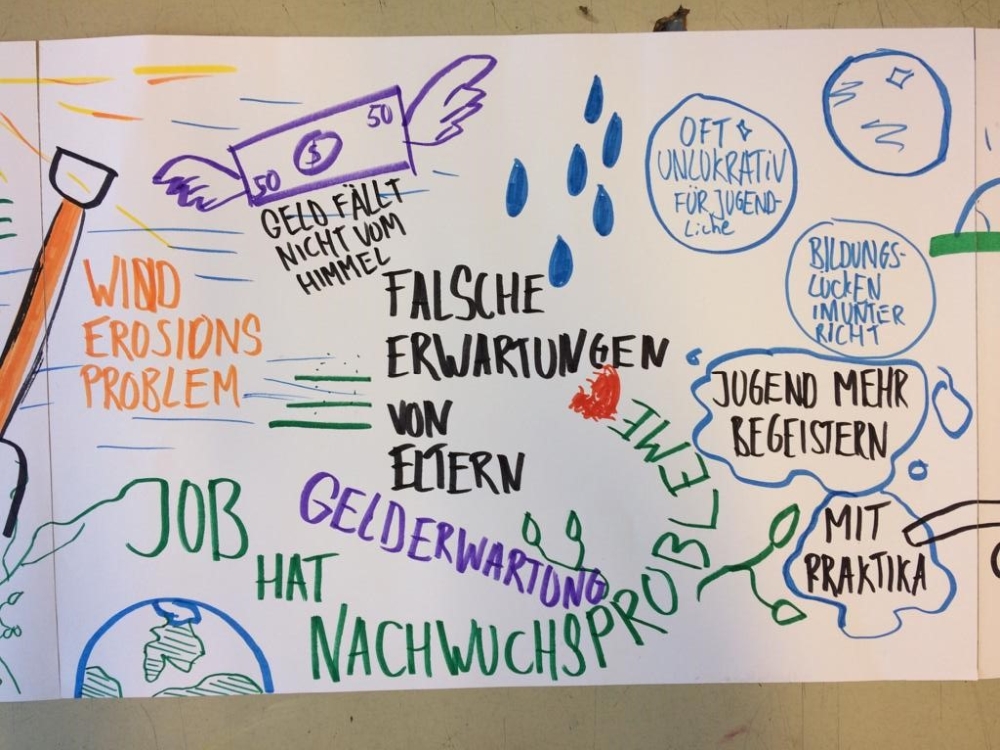 50
$
50
GELD FÄLLT
NICHT VOM
HIMMEL
WIND
EROSIONS
PROBLEM
FALSCHE
ERWARTUNGEN
VON
ELTERN
OFT
UNLUKRATIV
FÜR JUGEND-
Liche
BILDUNGS-
LUCKEN
IM UNTER
RICHT
JUGEND MEHR
BEGEISTERN
MIT
PRAKTIKA
GELDERWARTUNG
JOB
HAT
NACHWUCHSPROBLEME